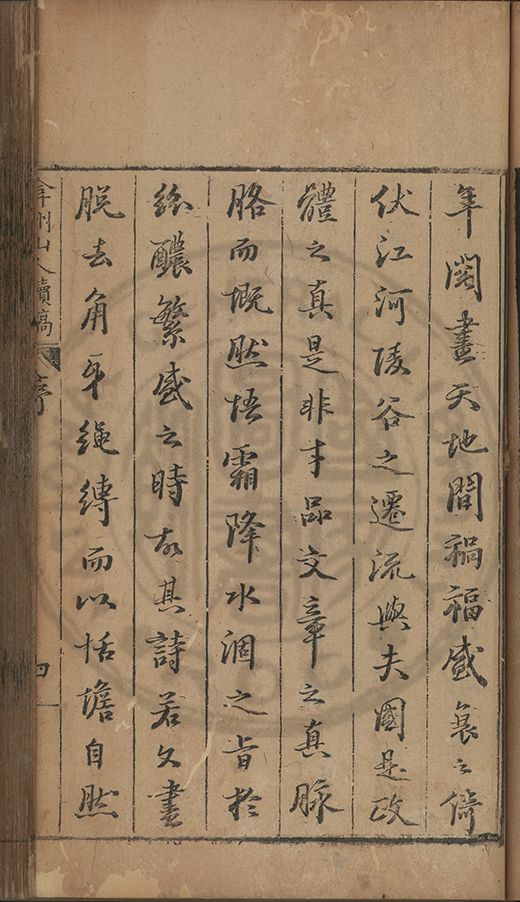 年閱盡天地間禍福盛衰之倚
伏江河陵谷之遷流與夫國是政
體之真是非才品文章之真脉
胳而慨然悟霜降水涸之旨於
紛醲繁盛之時故其詩若文盡
脫去角牙繩縛而以恬澹自然
弇州山人續稿
序
四